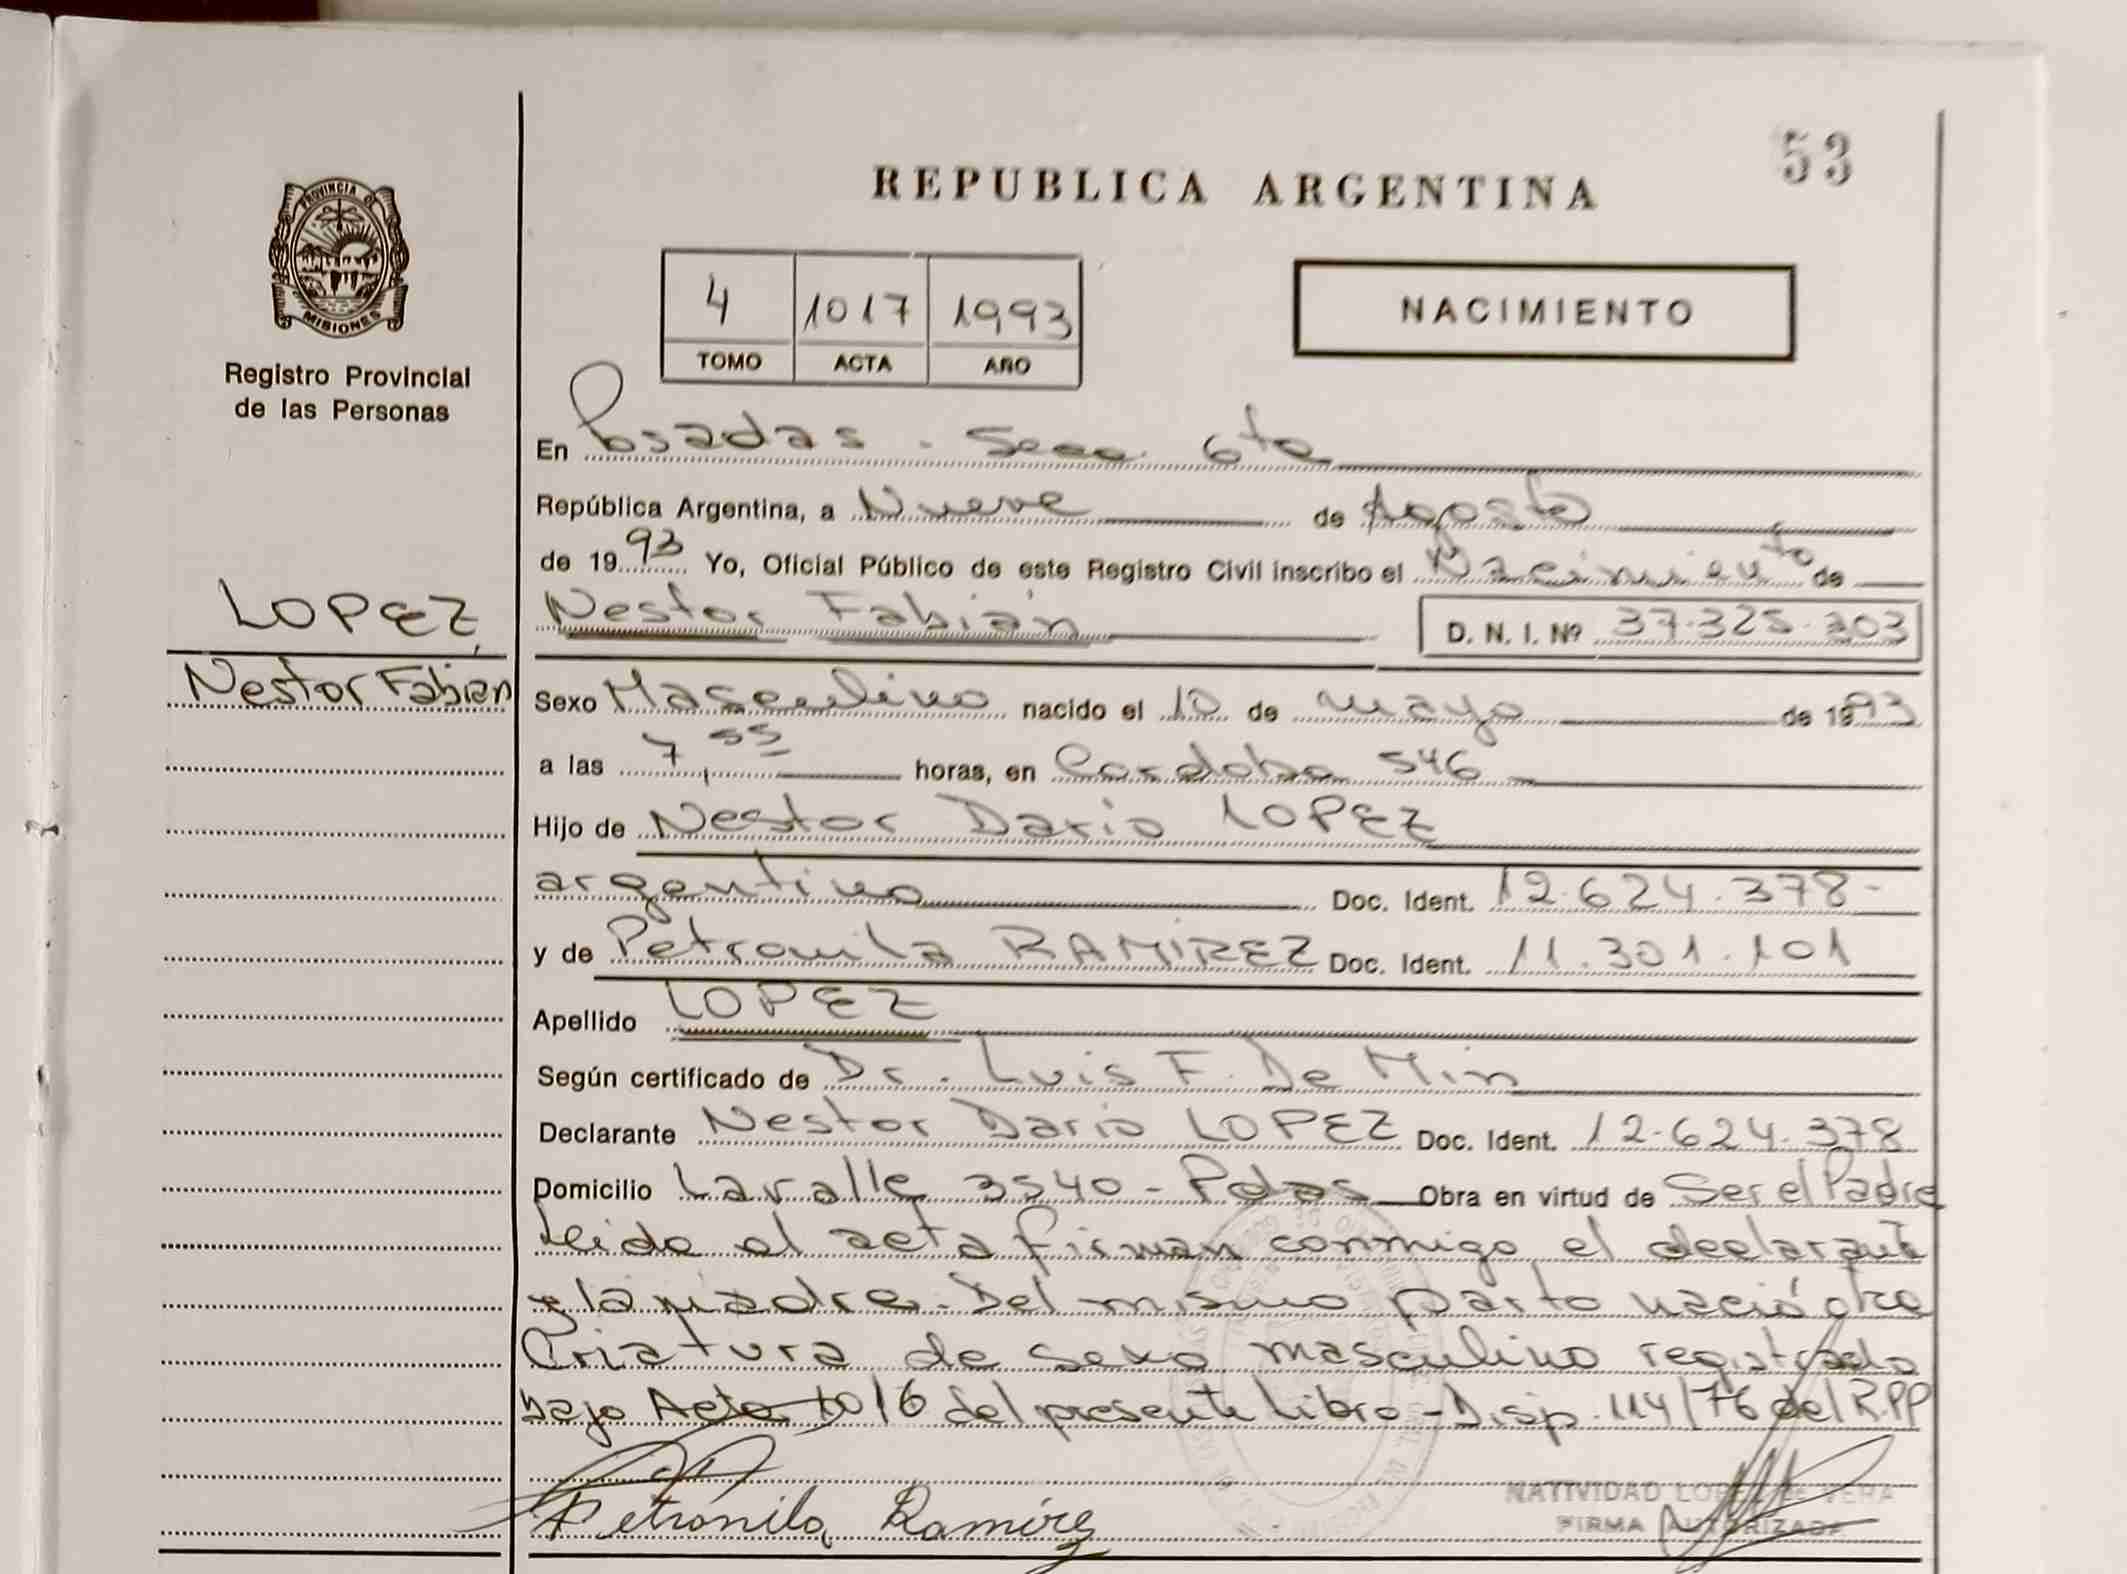 53
REPUBLICA ARGENTINA
PROVINCIA DE
MISIONES
Registro Provincial
de las Personas
4 1017 1993
TOMO ACTA AÑO
NACIMIENTO
En Posadas - Secc. 6ta
República Argentina, a Nueve de Agosto
de 1993 Yo, Oficial Público de este Registro Civil inscribo el Nacimiento de
LOPEZ,
Nestor Fabián D. N. I. Nº 37.325.203
Nestor Fabian
Sexo Masculino nacido el 10 de mayo de 1993
a las 7,55 horas, en Cordoba 546
Hijo de Nestor Dario LOPEZ
argentino Doc. Ident. 12.624.378-
y de Petronila RAMIREZ Doc. Ident. 11.301.101
Apellido LOPEZ
Según certificado de Dr. Luis F. De Min
Declarante Nestor Dario LOPEZ Doc. Ident. 12.624.378
Domicilio Lavalle 3540 - Pdas Obra en virtud de Ser el Padre
Leida el acta firman conmigo el declarante
y la madre. Del mismo parto nació otra
Criatura de sexo masculino registrado
bajo Acta 1016 del presente Libro - Disp. 114/76 del R.P.P
NATIVIDAD LOPEZ de VERA
FIRMA AUTORIZADA
Petronila Ramírez